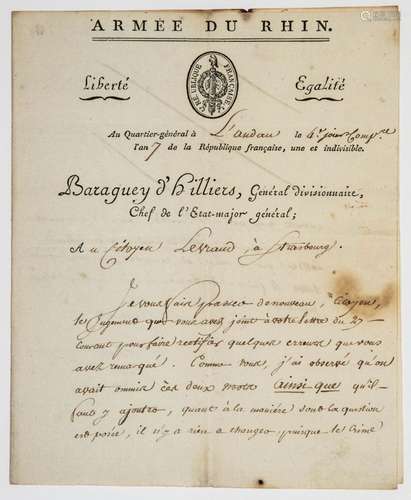 ARMÉE DU RHIN.
Liberté
RÉPUBLIQUE FRANÇAISE.
Egalité
Au Quartier-général à Landau le 4e jour Compre
l'an 7 de la République française, une et indivisible.
Baraguey d'Hilliers, Général divisionnaire,
Chef de l'Etat-major général;
Au Citoyen Levrand à Strasbourg.
Je vous fais passer de nouveau, Citoyen,
le Jugement que vous avez joint à votre lettre du 27
courant pour faire rectifier quelques erreurs que vous
avez remarqué. Comme vous, j'ai observé qu'on
avait omis ces deux mots ainsi que qu'il
faut y ajouter, quant à la manière dont la question
est posée, il n'y a rien a changer puisque le Crime